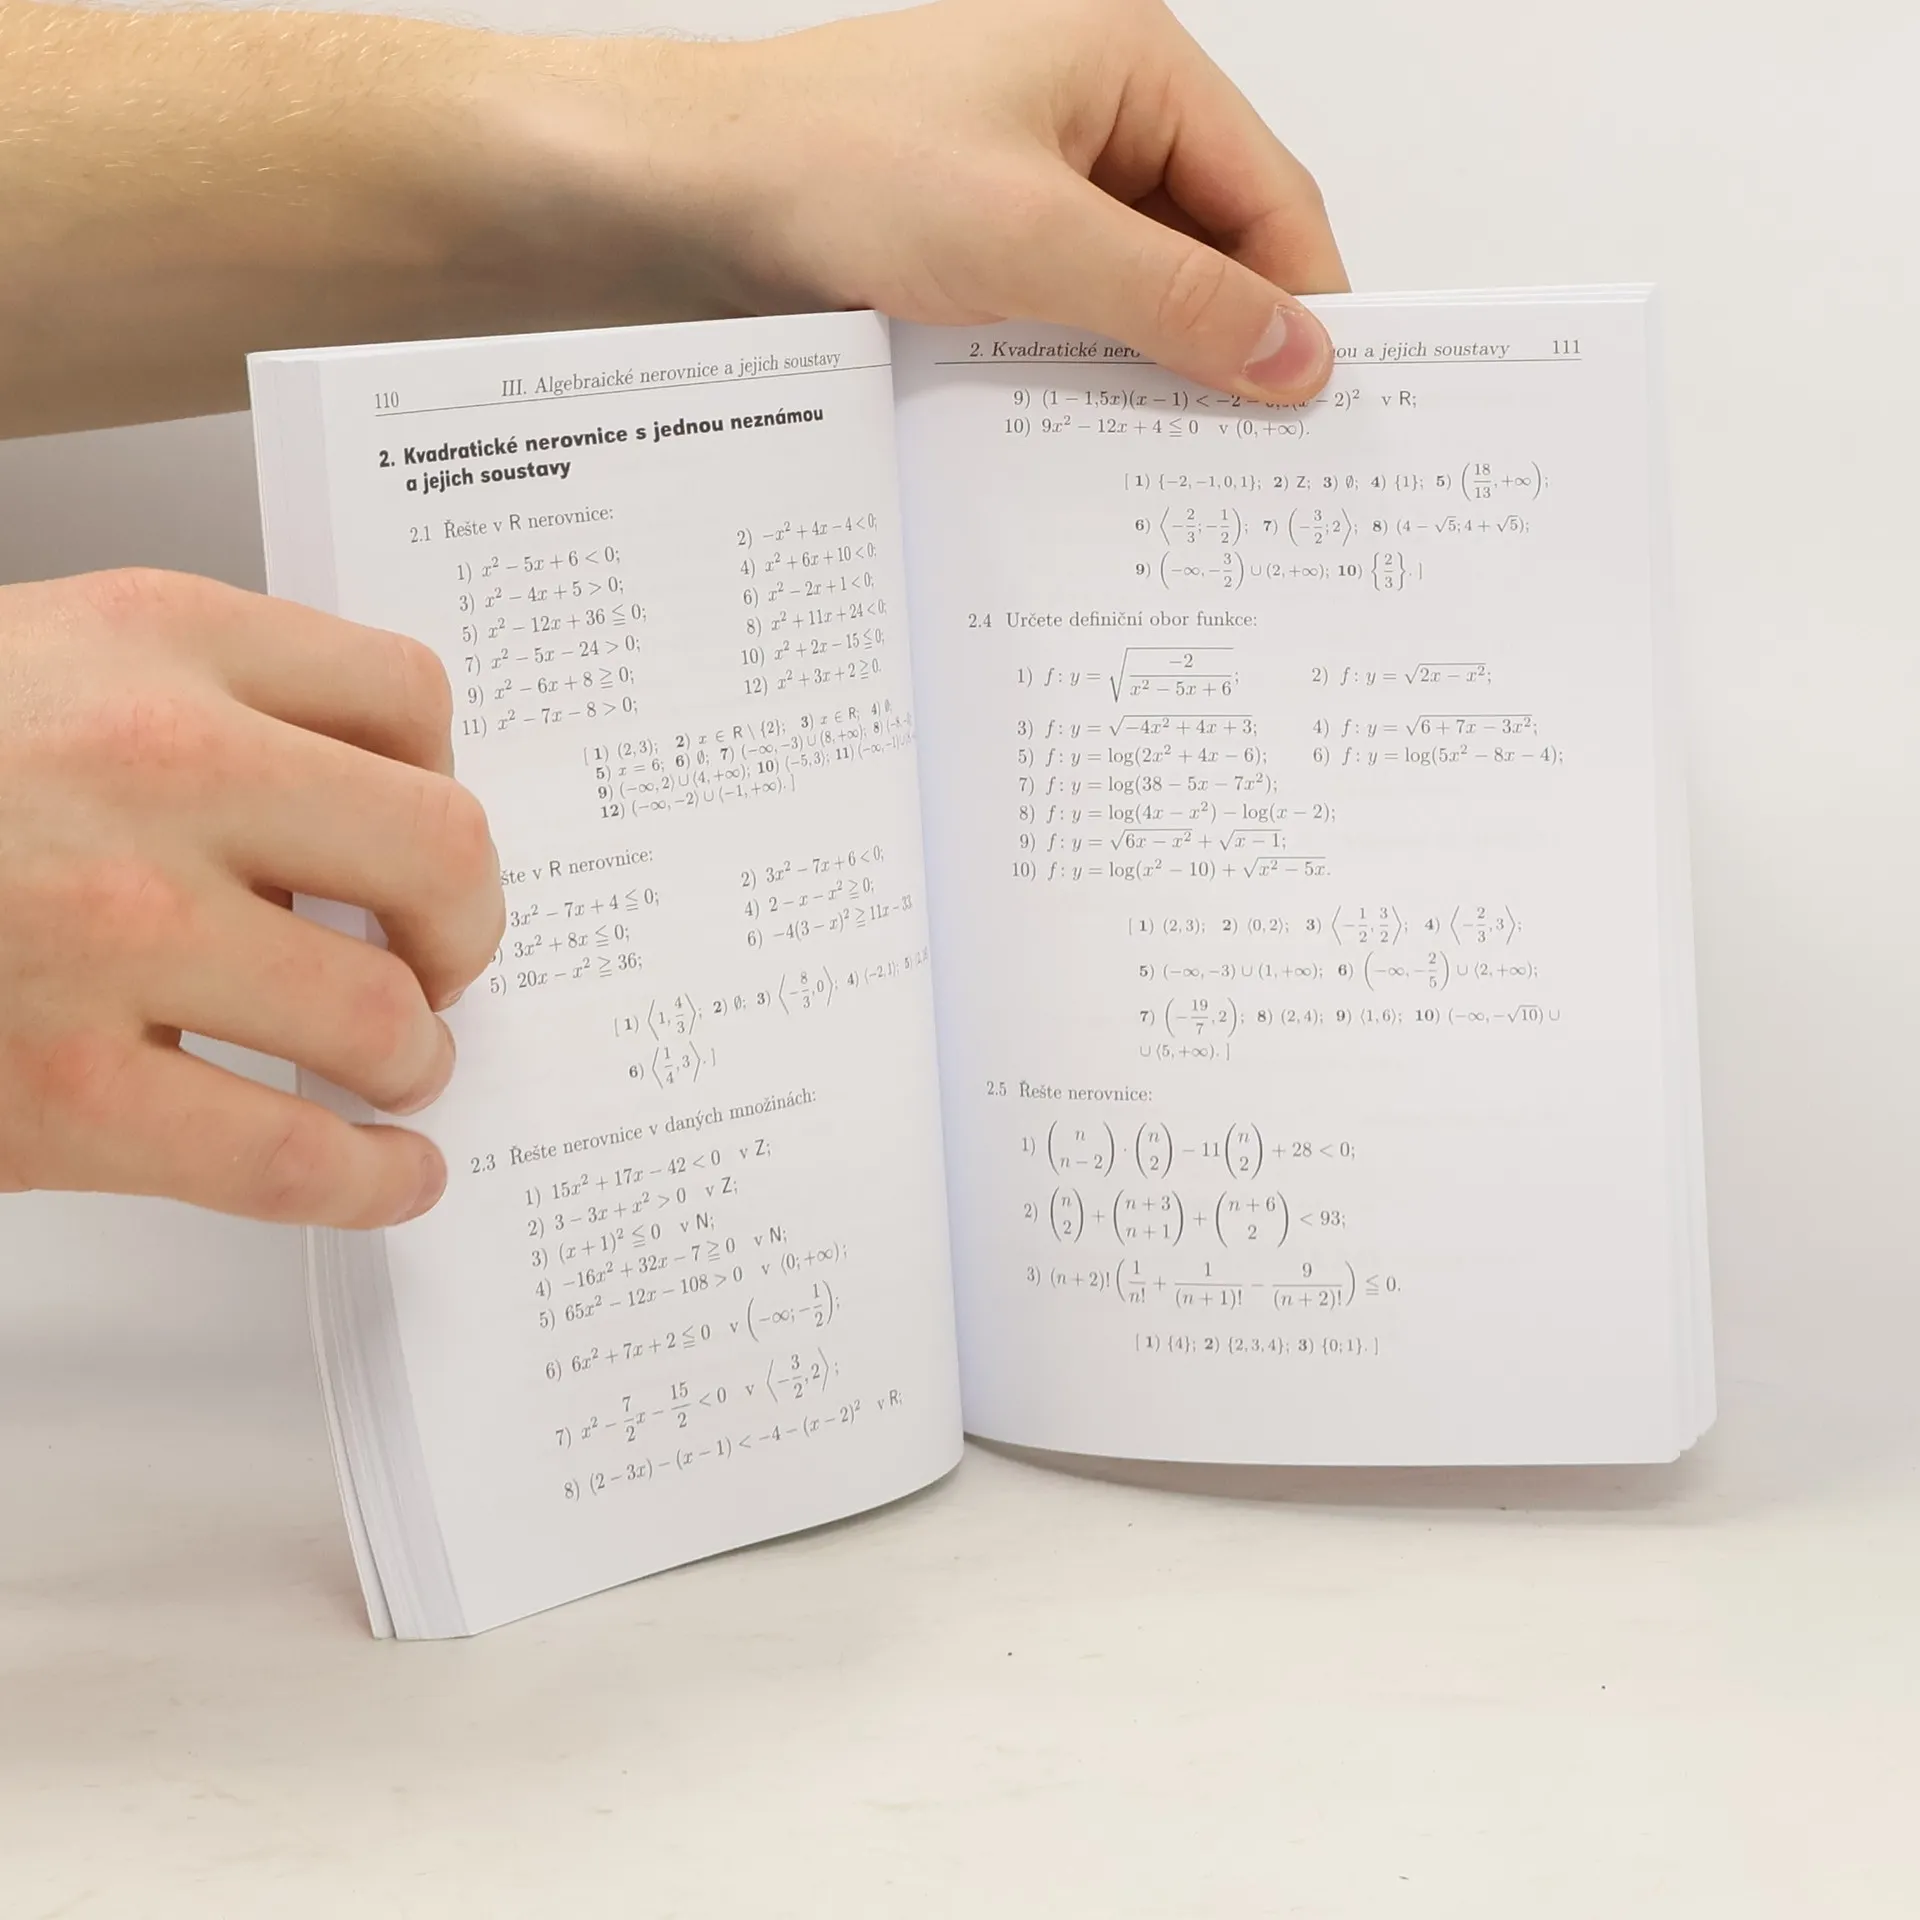 110 III. Algebraické nerovnice a jejich soustavy
2. Kvadratické nerovnice s jednou neznámou
a jejich soustavy
2.1 Řešte v R nerovnice:
1) x² − 5x + 6 < 0; 2) −x² + 4x − 4 < 0;
3) x² − 4x + 5 > 0; 4) x² + 6x + 10 < 0;
5) x² − 12x + 36 ≦ 0; 6) x² − 2x + 1 < 0;
7) x² − 5x − 24 > 0; 8) x² + 11x + 24 < 0;
9) x² − 6x + 8 ≧ 0; 10) x² + 2x − 15 ≦ 0;
11) x² − 7x − 8 > 0; 12) x² + 3x + 2 ≧ 0.
[ 1) (2,3); 2) x ∈ R \ {2}; 3) x ∈ R; 4) ∅;
5) x = 6; 6) ∅; 7) (−∞,−3) ∪ (8,+∞); 8)
9) (−∞,2) ∪ (4,+∞); 10) (−5,3); 11) (−∞,−1)
12) (−∞,−2) ∪ (−1,+∞). ]
šte v R nerovnice:
3x² − 7x + 4 ≦ 0; 2) 3x² − 7x + 6 < 0;
) 3x² + 8x ≦ 0; 4) 2 − x − x² ≧ 0;
5) 20x − x² ≧ 36; 6) −4(3 − x)² ≧ 11x − 33
[ 1) ⟨1, 4/3⟩; 2) ∅; 3) ⟨−8/3, 0⟩; 4) (−2,1); 5)
6) ⟨1/4, 3⟩. ]
2.3 Řešte nerovnice v daných množinách:
1) 15x² + 17x − 42 < 0 v Z;
2) 3 − 3x + x² > 0 v Z;
3) (x + 1)² ≦ 0 v N;
4) −16x² + 32x − 7 ≧ 0 v N;
5) 65x² − 12x − 108 > 0 v (0; +∞);
6) 6x² + 7x + 2 ≦ 0 v (−∞; −1/2);
7) x² − 7/2x − 15/2 < 0 v ⟨−3/2, 2⟩;
8) (2 − 3x) − (x − 1) < −4 − (x − 2)² v R;
2. Kvadratické nero ou a jejich soustavy 111
9) (1 − 1,5x)(x − 1) < −2 − − 2)² v R;
10) 9x² − 12x + 4 ≦ 0 v (0, +∞).
[ 1) {−2, −1, 0, 1}; 2) Z; 3) ∅; 4) {1}; 5) (18/13, +∞);
6) ⟨−2/3; −1/2); 7) (−3/2; 2⟩; 8) (4 − √5; 4 + √5);
9) (−∞, −3/2) ∪ (2, +∞); 10) {2/3}. ]
2.4 Určete definiční obor funkce:
1) f: y = √(−2/(x² − 5x + 6)); 2) f: y = √(2x − x²);
3) f: y = √(−4x² + 4x + 3); 4) f: y = √(6 + 7x − 3x²);
5) f: y = log(2x² + 4x − 6); 6) f: y = log(5x² − 8x − 4);
7) f: y = log(38 − 5x − 7x²);
8) f: y = log(4x − x²) − log(x − 2);
9) f: y = √(6x − x²) + √(x − 1);
10) f: y = log(x² − 10) + √(x² − 5x).
[ 1) (2,3); 2) ⟨0,2⟩; 3) ⟨−1/2, 3/2⟩; 4) ⟨−2/3, 3⟩;
5) (−∞,−3) ∪ (1,+∞); 6) (−∞, −2/5) ∪ (2,+∞);
7) (−19/7, 2); 8) (2,4); 9) ⟨1,6⟩; 10) (−∞,−√10) ∪
∪ ⟨5,+∞). ]
2.5 Řešte nerovnice:
1) (n n − 2) · (n 2) − 11(n 2) + 28 < 0;
2) (n 2) + (n + 3 n + 1) + (n + 6 2) < 93;
3) (n + 2)! (1/n! + 1/(n + 1)! − 9/(n + 2)!) ≦ 0.
[ 1) {4}; 2) {2, 3, 4}; 3) {0; 1}. ]